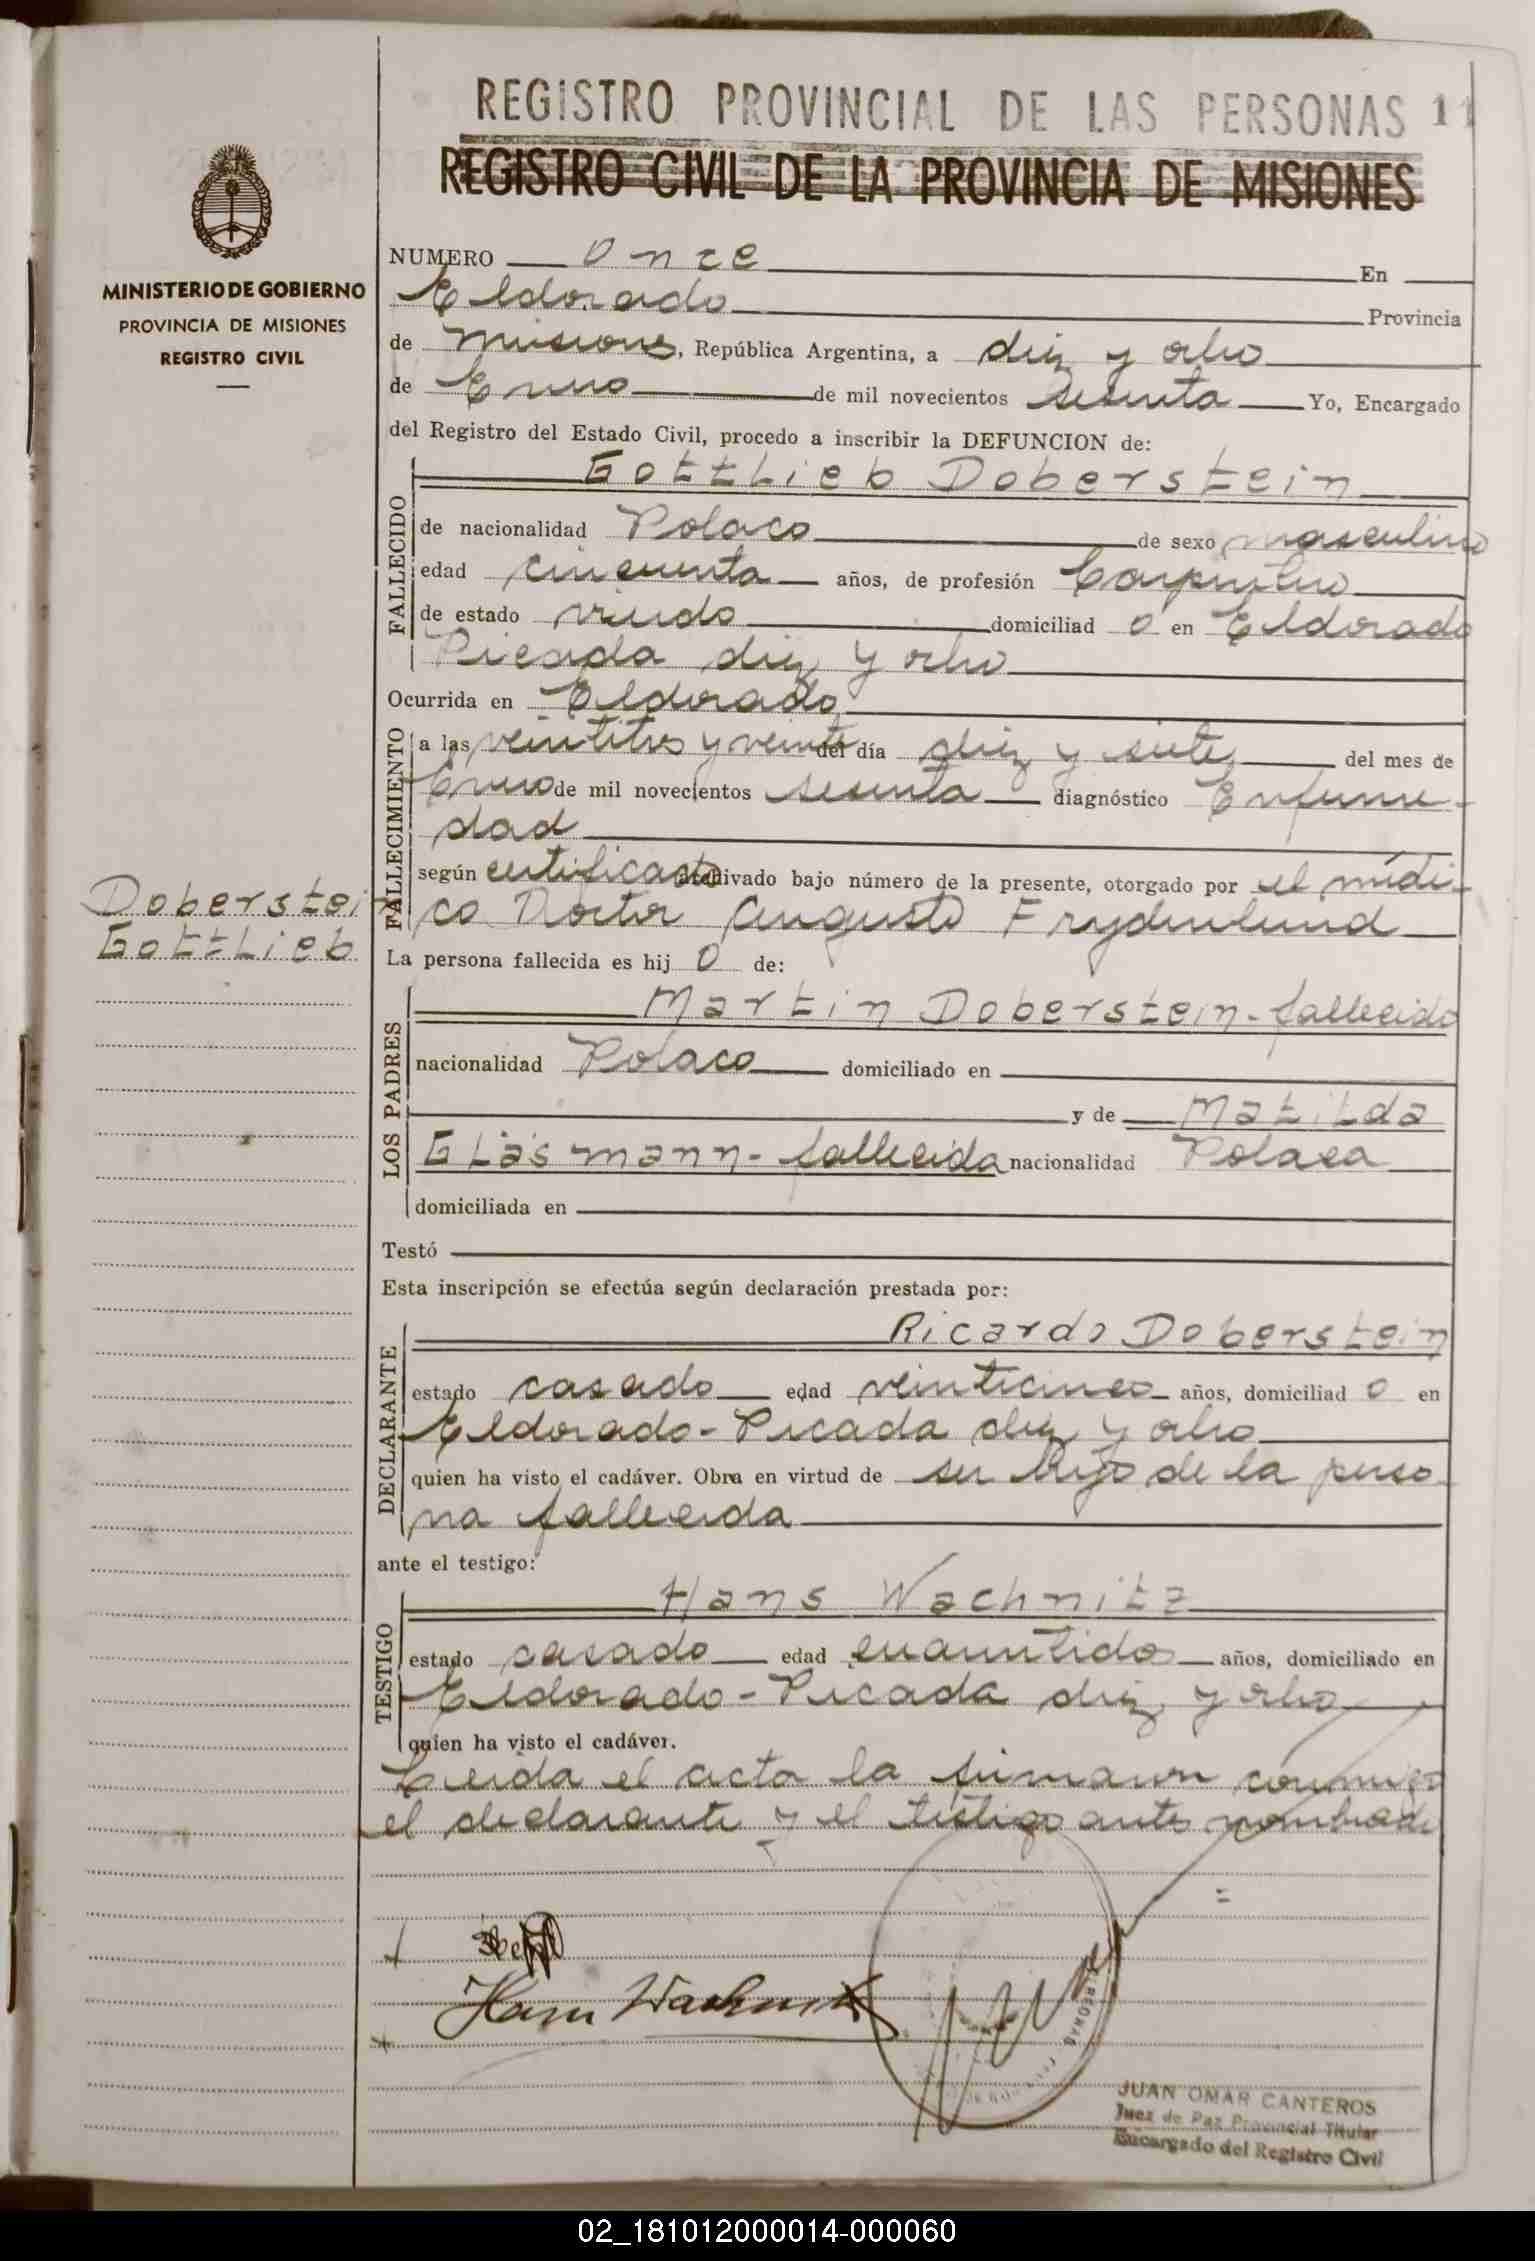 REGISTRO PROVINCIAL DE LAS PERSONAS 11
REGISTRO CIVIL DE LA PROVINCIA DE MISIONES
MINISTERIO DE GOBIERNO
PROVINCIA DE MISIONES
REGISTRO CIVIL
NUMERO Once En
Eldorado Provincia
de Misiones, República Argentina, a diez y ocho
de Enero de mil novecientos sesenta Yo, Encargado
del Registro del Estado Civil, procedo a inscribir la DEFUNCION de:
FALLECIDO
Gottlieb Doberstein
de nacionalidad Polaco de sexo masculino
edad cincuenta años, de profesión Carpintero
de estado viudo domiciliad o en Eldorado
Picada diez y ocho
Ocurrida en Eldorado
FALLECIMIENTO
a las veintitres y veinte del día diez y siete del mes de
Enero de mil novecientos sesenta diagnóstico Enferme-
dad
según certificado archivado bajo número de la presente, otorgado por el médi-
co Doctor Augusto Frydenlund
Doberstein
Gottlieb
La persona fallecida es hij o de:
LOS PADRES
Martin Doberstein - fallecido
nacionalidad Polaco domiciliado en
y de Matilda
Gläsmann - fallecida nacionalidad Polaca
domiciliada en
Testó
Esta inscripción se efectúa según declaración prestada por:
DECLARANTE
Ricardo Doberstein
estado casado edad veinticinco años, domiciliad o en
Eldorado - Picada diez y ocho
quien ha visto el cadáver. Obra en virtud de ser hijo de la perso-
na fallecida
ante el testigo:
TESTIGO
Hans Wachnitz
estado casado edad cuarentidos años, domiciliado en
Eldorado - Picada diez y ocho
quien ha visto el cadáver.
Leida el acta la firmaron conmigo
el declarante y el testigo antes nombrado
Hans Wachnitz
JUAN OMAR CANTEROS
Juez de Paz Provincial Titular
Encargado del Registro Civil
02_181012000014-000060